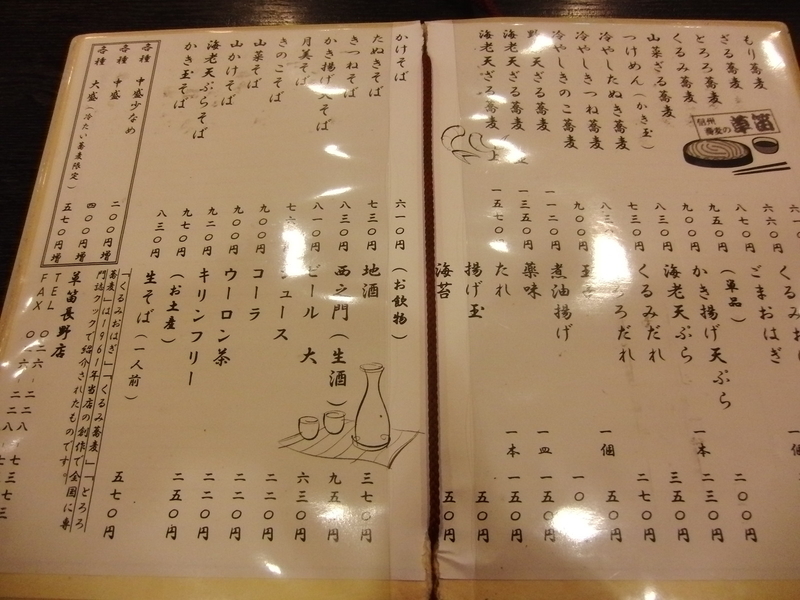 もり蕎麦
ざる蕎麦 六六〇円
とろろ蕎麦 八七〇円
くるみ蕎麦 九五〇円
山菜ざる蕎麦 九〇〇円
つけめん（かき玉） 八三〇円
冷やしたぬき蕎麦
冷やしきつね蕎麦
冷やしきのこ蕎麦 九〇〇円
天ざる蕎麦 一一二〇円
海老天ざる蕎麦 一三五〇円
海老天ざる蕎麦 一五七〇円
信州
蕎麦の
草笛
くるみ
ごまおはぎ 一個
（単品） 二〇〇円
かき揚げ天ぷら 一本 二三〇円
海老天ぷら 三五〇円
くるみだれ 二七〇円
ろだれ 五〇円
一個 五〇円
煮油揚げ 一〇円
薬味 一皿 一五〇円
たれ 一本 一五〇円
揚げ玉 五〇円
海苔 五〇円
かけそば 六一〇円
たぬきそば 七三〇円
きつねそば 八三〇円
かき揚げ天そば 八一〇円
月美そば
きのこそば 九〇〇円
山菜そば 九〇〇円
山かけそば 九二〇円
海老天ぷらそば 九七〇円
かき玉そば 八三〇円
各種 中盛少なめ 二〇〇円増
各種 中盛 四〇〇円増
各種 大盛（冷たい蕎麦限定） 五七〇円増
（お飲物）
地酒 三七〇円
西之門（生酒） 九五〇円
ビール 大 六三〇円
ジュース 二二〇円
コーラ 二二〇円
ウーロン茶 二二〇円
キリンフリー 二五〇円
（お土産）
生そば（一人前） 五七〇円
「くるみおはぎ」「くるみ蕎麦」「とろろ
蕎麦」は1961年当店の創作で全国に専
門誌クックで紹介されたものです。
草笛長野店
TEL 〇二六‐二二八
FAX 〇二六‐二二八